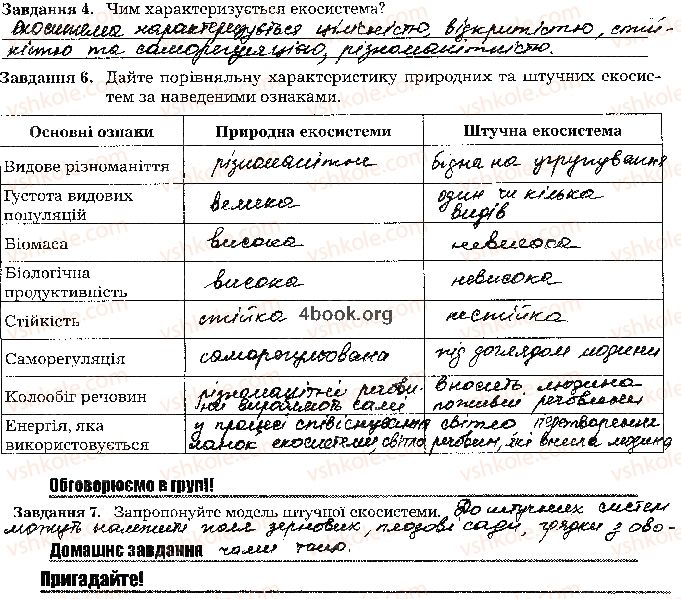 Завдання 4. Чим характеризується екосистема?
Екосистема характеризується цілісністю, відкритістю, стій-
кістю та саморегуляцією, різноманітністю.
Завдання 6. Дайте порівняльну характеристику природних та штучних екосис-
тем за наведеними ознаками.
Основні ознаки Природна екосистеми Штучна екосистема
Видове різноманіття різноманітне бідна на угрупування
Густота видових популяцій велика один чи кілька видів
Біомаса висока невисока
Біологічна продуктивність висока невисока
Стійкість стійка нестійка
4book.org
Саморегуляція саморегульована під доглядом людини
Колообіг речовин різноманітні речовини виробляють самі вносить людина поживні речовини
Енергія, яка використовується у процесі співіснування ланок екосистеми, світло світло перетворення речовин, які внесла людина
Обговорюємо в групі!
Завдання 7. Запропонуйте модель штучної екосистеми. До штучних систем
можуть належати поля зернових, плодові сади, грядки з ово-
Домашнє завдання чами тощо.
Пригадайте!
vshkole.com